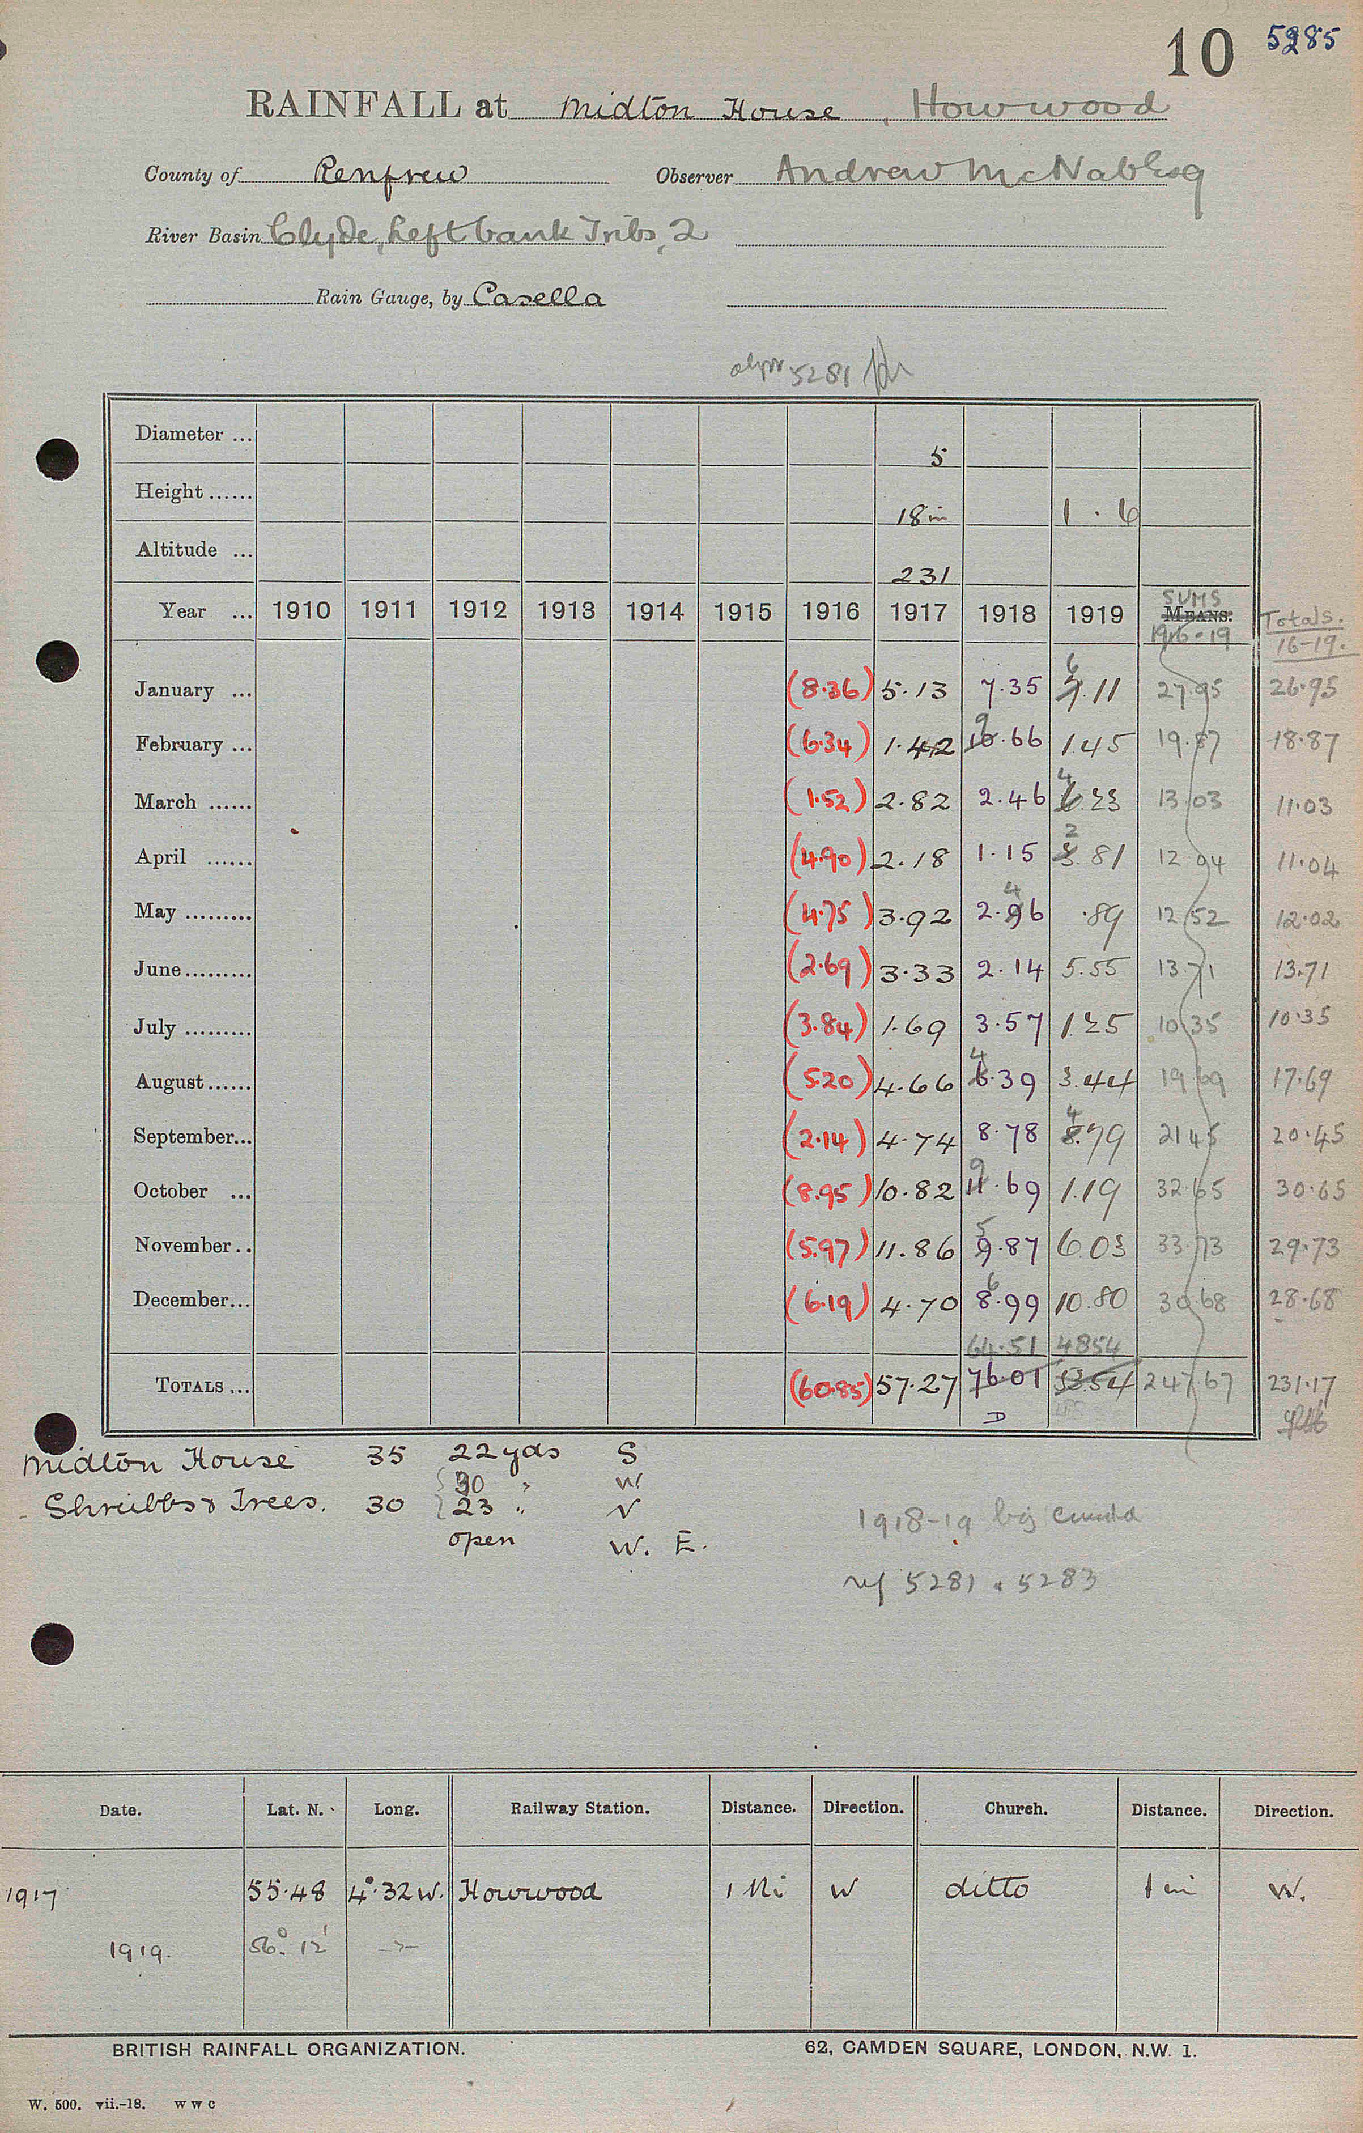 10 5285
RAINFALL at Midton House, Howwood
County of Renfrew Observer Andrew McNab Esq
River Basin Clyde, Left bank Tribs, 2
Rain Gauge, by Casella
5281
Diameter ... 5
Height ...... 18 in 1 . 6
Altitude ... 231
SUMS
Year ... 1910 1911 1912 1913 1914 1915 1916 1917 1918 1919 MEANS. Totals.
1916-19 16-19.
January ... (8.36) 5.13 7.35 7.11 6 27.95 26.95
February ... (6.34) 1.42 10.66 9 1.45 19.87 18.87
March ...... (1.52) 2.82 2.46 6.23 4 13.03 11.03
April ...... (4.90) 2.18 1.15 3.81 2 12.04 11.04
May ......... (4.75) 3.92 2.96 4 .89 12.52 12.02
June ......... (2.69) 3.33 2.14 5.55 13.71 13.71
July ......... (3.84) 1.69 3.57 1.25 10.35 10.35
August ...... (5.20) 4.66 6.39 4 3.44 19.69 17.69
September... (2.14) 4.74 8.78 8.79 4 21.45 20.45
October ... (8.95) 10.82 11.69 9 1.19 32.65 30.65
November .. (5.97) 11.86 9.87 5 6.03 33.73 29.73
December... (6.19) 4.70 8.99 6 10.80 30.68 28.68
64.51 48.54
TOTALS ... (60.85) 57.27 76.01 53.54 247.67 231.17
D
Midton House 35 22 yds S
30 " W.
Shrubbs & Trees. 30 23 " N
open W. E.
1918-19
ref 5281 & 5283
Date. Lat. N. Long. Railway Station. Distance. Direction. Church. Distance. Direction.
1917 55.48 4°.32 W. Howwood 1 Mi W ditto 1 mi W.
1919. 56° 12'
BRITISH RAINFALL ORGANIZATION. 62, CAMDEN SQUARE, LONDON, N.W. 1.
W. 500. vii.-18. W W C